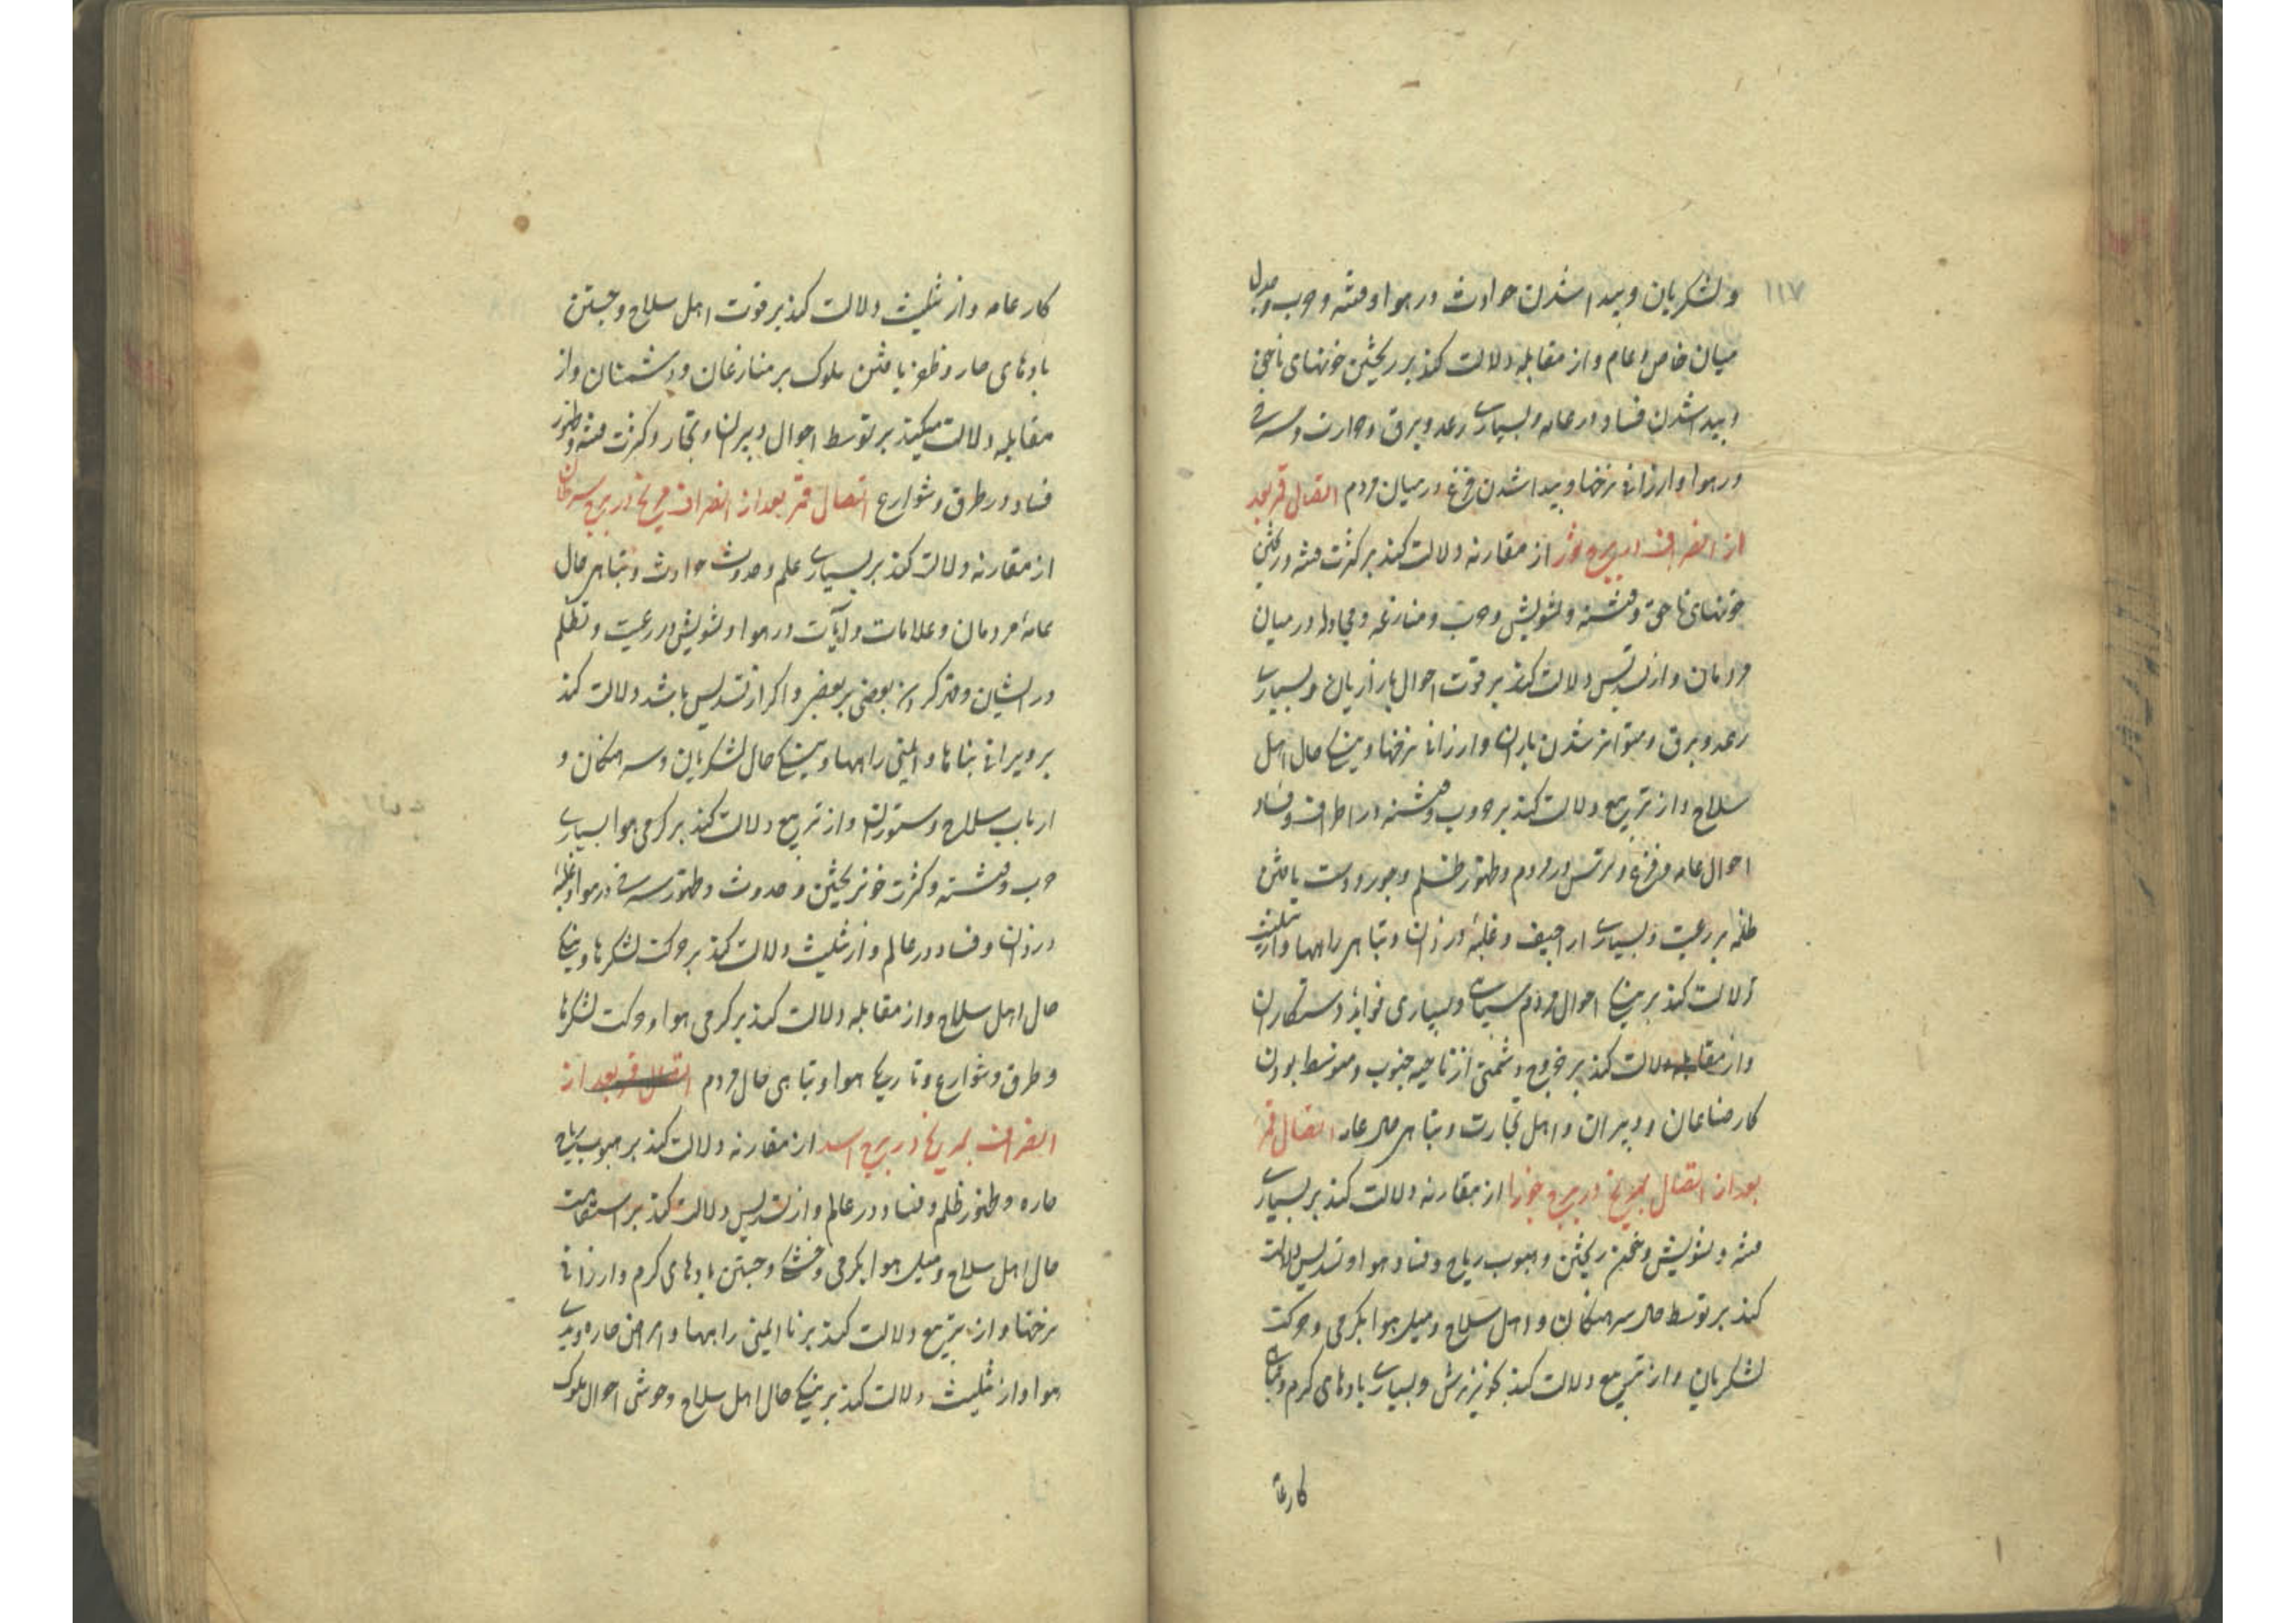 ۱۱۷
و لشکریان و پیدا شدن حوادث در هوا و فتنه و حرب و جدل
میان خاص و عام و از مقابله دلالت کند بر ریختن خونهای ناحق
و پیدا شدن فساد در عامه و بسیاری رعد و برق و حرارت و سرخی
در هوا و ارزانی نرخها و پیدا شدن فزع در میان مردم اتصال قمر بعد
از انصراف از برج ثور از مقارنه دلالت کند بر کثرت فتنه و ریختن
خونهای ناحق و فتنه و تشویش و حرب و منازعه و مجادله در میان
مردمان و از تسدیس دلالت کند بر قوت احوال بازاریان و بسیاری
رعد و برق و متواتر شدن باران و ارزانی نرخها و نیکی حال اهل
سلاح و از تربیع دلالت کند بر حروب و فتنه در اطراف و فساد
احوال عامه و فزع و ترس در مردم و ظهور ظلم و جور و دست یافتن
ظلمه بر رعیت و بسیاری اراجیف و غلبه دزدان و تباهی راهها و از تثلیث
دلالت کند بر نیکی احوال مردم سپاهی و بسیاری فواید دستکاران
و از مقابله دلالت کند بر خروج دشمنی از ناحیه جنوب و متوسط بودن
کار صناعان و دبیران و اهل تجارت و تباهی حال عامه اتصال قمر
بعد از اتصال بمریخ در برج جوزا از مقارنه دلالت کند بر بسیاری
فتنه و تشویش و خون ریختن و هبوب ریاح و فساد هوا و تسدیس دلالت
کند بر توسط حال سرهنگان و اهل سلاح و میل هوا بگرمی و حرکت
لشکریان و از تربیع دلالت کند بخونریزش و بسیاری بادهای گرم و تباهی
کار عامه
کار عامه و از تثلیث دلالت کند بر قوت اهل سلاح و جستن
بادهای حار و ظفر یافتن ملوک بر منازعان و دشمنان و از
مقابله دلالت میکند بر توسط احوال دبیران و تجار و کثرت فتنه و ظهور
فساد در طرق و شوارع اتصال قمر بعد از انصراف مریخ در برج سرطان
از مقارنه دلالت کند بر بسیاری علم و حدوث حوادث و تباهی حال
عامه مردمان و علامات و آیات در هوا و تشویش در رعیت و تظلم
در ایشان و بعضی بر بعضی و اگر از تسدیس باشد دلالت کند
بر ویرانی بناها و ایمنی راهها و نیکی حال لشکریان و سرهنگان و
ارباب سلاح و ستوران و از تربیع دلالت کند بر گرمی هوا بسیاری
حرب و فتنه و کثرت خونریختن و حدوث و ظهور سرخی در هوا و غلبه
دزدان و فساد در عالم و از تثلیث دلالت کند بر حرکت لشکرها و نیکی
حال اهل سلاح و از مقابله دلالت کند بر گرمی هوا و حرکت لشکرها
و طرق و شوارع و تاریکی هوا و تباهی حال مردم اتصال قمر بعد از
انصراف بمریخ در برج اسد از مقارنه دلالت کند بر هبوب ریاح
حاره و ظهور ظلم و فساد در عالم و از تسدیس دلالت کند بر استقامت
حال اهل سلاح و میل هوا بگرمی و خشکی و جستن بادهای گرم و ارزانی
نرخها و از تربیع دلالت کند بر نا ایمنی راهها و امراض حاره و تیرگی
هوا و از تثلیث دلالت کند بر نیکی حال اهل سلاح و خوشی احوال ملوک